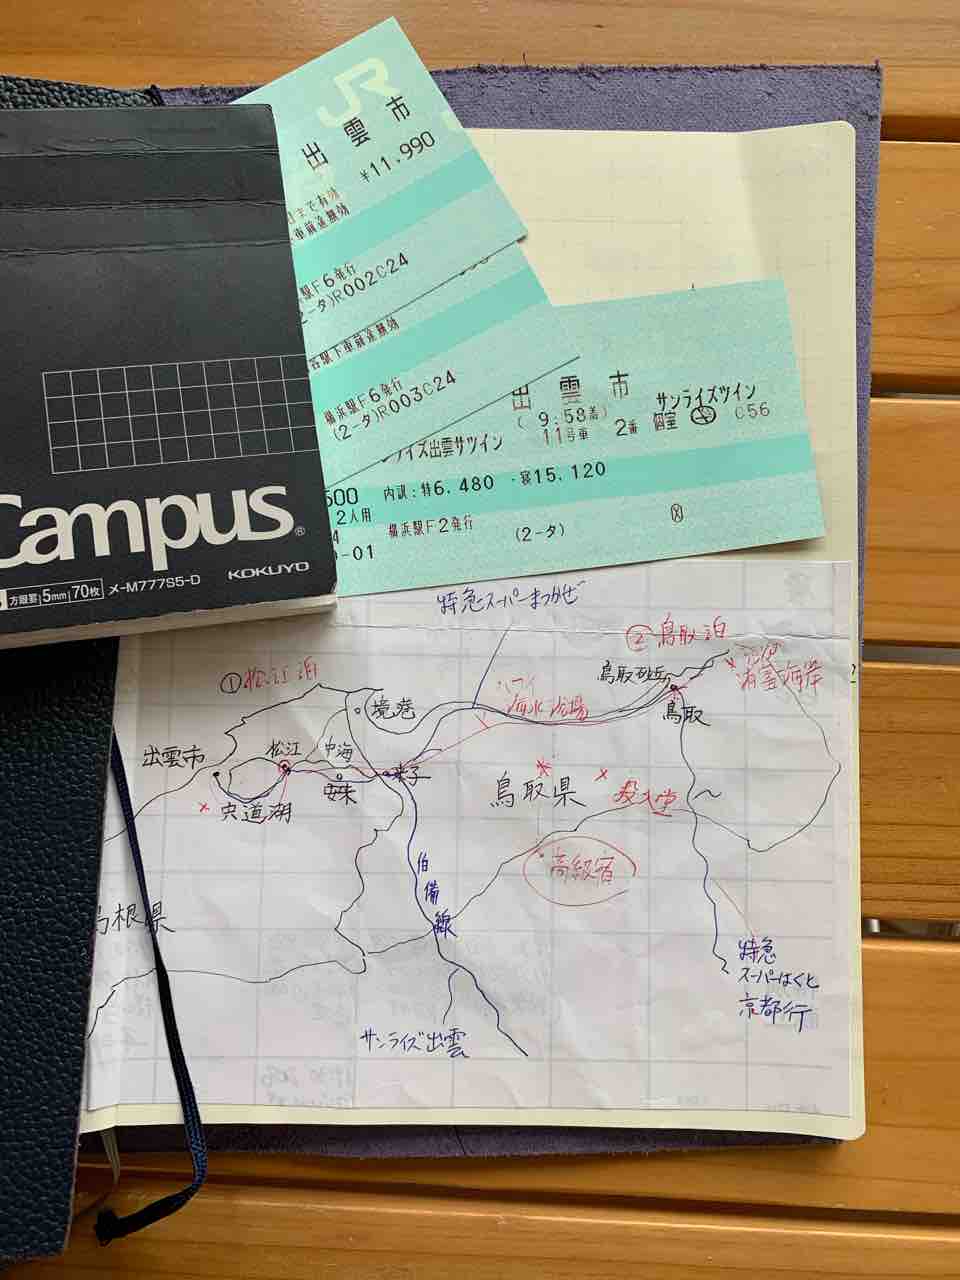 JR
出雲市
¥11.990
日まで有効
下車前途無効
駅F6発行
2-タ)R002C24
各駅下車前途無効
横浜駅F6発行
(2-タ)R003C24
出雲市
( 9:58着)
サンライズツイン
11号車 2番 個室 C56
イズ出雲サツイン
500 内訳:特6.480 ・寝15.120
2人用
横浜駅F2発行
(2-タ)
-01
Campus®
方眼罫 5mm 70枚 メ-M777S5-D KOKUYO
特急スーパーまつかぜ
②鳥取泊
①松江泊
鳥取砂丘
海岸
境港
ハワイ
海水浴場
鳥取
出雲市
松江
中海
米子
安来
宍道湖
鳥取県
投入堂
高級宿
伯備線
島根県
特急
スーパーはくと
京都行
サンライズ出雲